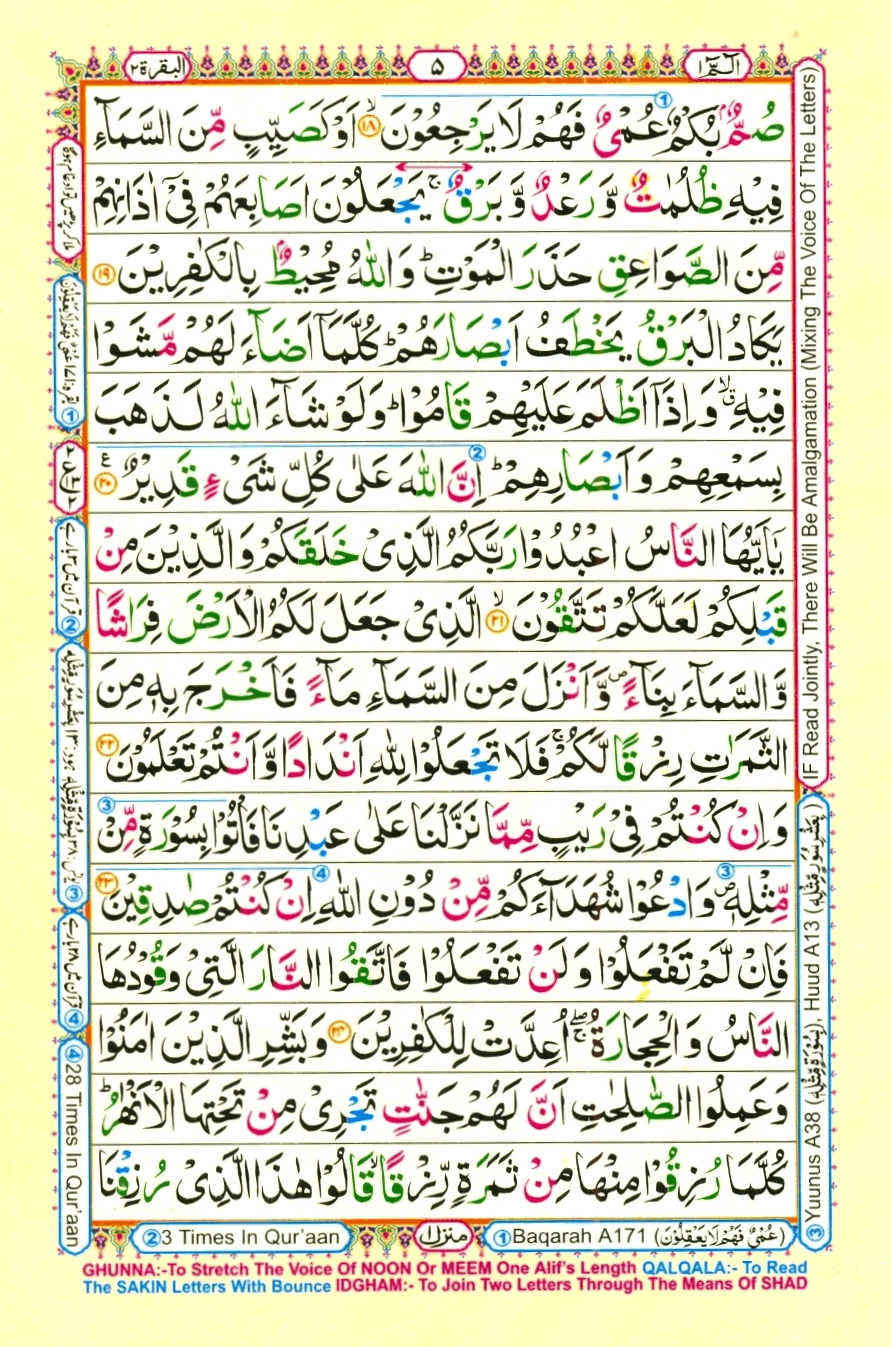 البقرة ٢
٥
الٓمّٓ ١
صُمٌّۢ بُكْمٌ عُمْیٌ فَهُمْ لَا یَرْجِعُوْنَ ۙ﴿۱۸﴾ اَوْ كَصَیِّبٍ مِّنَ السَّمَآءِ
فِیْهِ ظُلُمٰتٌ وَّ رَعْدٌ وَّ بَرْقٌ ۚ یَجْعَلُوْنَ اَصَابِعَهُمْ فِیْۤ اٰذَانِهِمْ
مِّنَ الصَّوَاعِقِ حَذَرَ الْمَوْتِ ؕ وَ اللّٰهُ مُحِیْطٌۢ بِالْكٰفِرِیْنَ ﴿۱۹﴾
یَكَادُ الْبَرْقُ یَخْطَفُ اَبْصَارَهُمْ ؕ كُلَّمَاۤ اَضَآءَ لَهُمْ مَّشَوْا
فِیْهِ ۙۗ وَ اِذَاۤ اَظْلَمَ عَلَیْهِمْ قَامُوْا ؕ وَ لَوْ شَآءَ اللّٰهُ لَذَهَبَ
بِسَمْعِهِمْ وَ اَبْصَارِهِمْ ؕ اِنَّ اللّٰهَ عَلٰی كُلِّ شَیْءٍ قَدِیْرٌ ﴿۲۰﴾ ع
یٰۤاَیُّهَا النَّاسُ اعْبُدُوْا رَبَّكُمُ الَّذِیْ خَلَقَكُمْ وَ الَّذِیْنَ مِنْ
قَبْلِكُمْ لَعَلَّكُمْ تَتَّقُوْنَ ۙ﴿۲۱﴾ الَّذِیْ جَعَلَ لَكُمُ الْاَرْضَ فِرَاشًا
وَّ السَّمَآءَ بِنَآءً ۪ وَّ اَنْزَلَ مِنَ السَّمَآءِ مَآءً فَاَخْرَجَ بِهٖ مِنَ
الثَّمَرٰتِ رِزْقًا لَّكُمْ ۚ فَلَا تَجْعَلُوْا لِلّٰهِ اَنْدَادًا وَّ اَنْتُمْ تَعْلَمُوْنَ ﴿۲۲﴾
وَ اِنْ كُنْتُمْ فِیْ رَیْبٍ مِّمَّا نَزَّلْنَا عَلٰی عَبْدِنَا فَاْتُوْا بِسُوْرَةٍ مِّنْ
مِّثْلِهٖ ۪ وَ ادْعُوْا شُهَدَآءَكُمْ مِّنْ دُوْنِ اللّٰهِ اِنْ كُنْتُمْ صٰدِقِیْنَ ﴿۲۳﴾
فَاِنْ لَّمْ تَفْعَلُوْا وَ لَنْ تَفْعَلُوْا فَاتَّقُوا النَّارَ الَّتِیْ وَقُوْدُهَا
النَّاسُ وَ الْحِجَارَةُ ۖۚ اُعِدَّتْ لِلْكٰفِرِیْنَ ﴿۲۴﴾ وَ بَشِّرِ الَّذِیْنَ اٰمَنُوْا
وَ عَمِلُوا الصّٰلِحٰتِ اَنَّ لَهُمْ جَنّٰتٍ تَجْرِیْ مِنْ تَحْتِهَا الْاَنْهٰرُ ؕ
كُلَّمَا رُزِقُوْا مِنْهَا مِنْ ثَمَرَةٍ رِّزْقًا ۙ قَالُوْا هٰذَا الَّذِیْ رُزِقْنَا
IF Read Jointly, There Will Be Amalgamation (Mixing The Voice Of The Letters)
③ Yuunus A38 (بِسُوْرَةٍ مِّثْلِهٖ), Huud A13 (بِعَشْرِ سُوَرٍ مِّثْلِهٖ)
② قرآن میں ۳ بار ہے
④ قرآن میں ۲۸ بار ہے
④ 28 Times In Qur'aan
② 3 Times In Qur'aan
منزل ١
① Baqarah A171 (عُمْیٌ فَهُمْ لَا یَعْقِلُوْنَ)
GHUNNA:-To Stretch The Voice Of NOON Or MEEM One Alif's Length QALQALA:- To Read
The SAKIN Letters With Bounce IDGHAM:- To Join Two Letters Through The Means Of SHAD